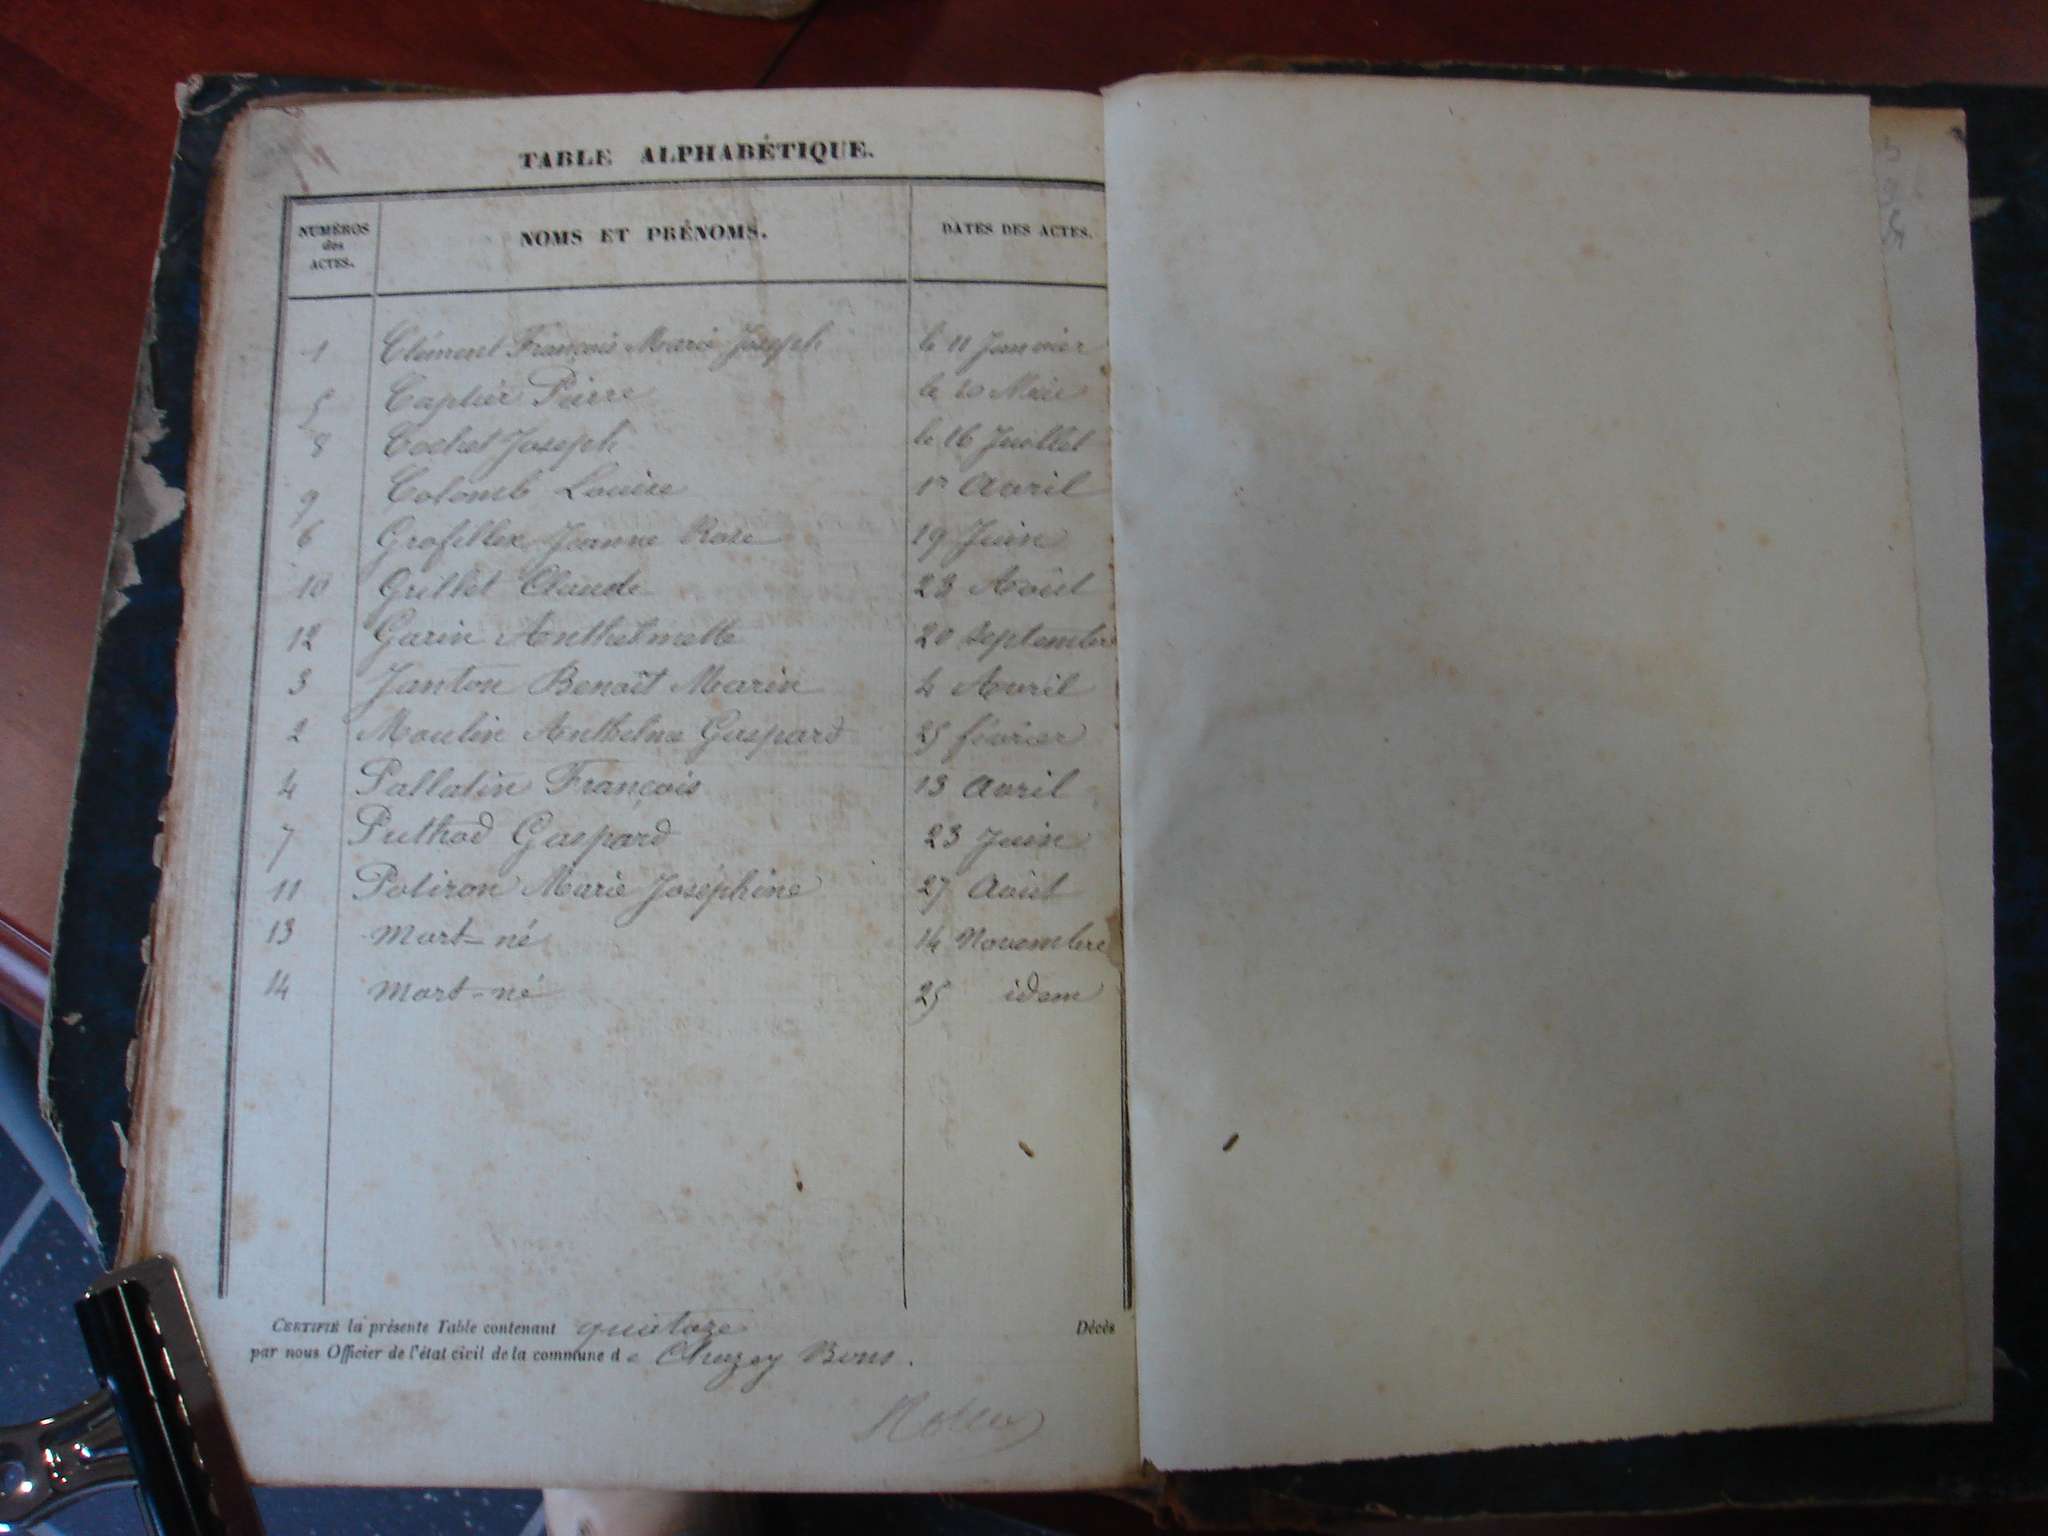 TABLE ALPHABÉTIQUE.
NUMÉROS des ACTES. NOMS ET PRÉNOMS. DATES DES ACTES.
1 Clément François Marie Joseph le 11 Janvier
5 Caplier Pierre le 20 Mai
8 Cochet Joseph le 16 Juillet
9 Colomb Louise 1r Avril
6 Grosfillex Jeanne Rose 19 Juin
10 Grillet Claude 23 Août
12 Garin Anthelmette 20 Septembre
3 Janton Benoît Marin 4 Avril
2 Moulin Anthelme Gaspard 25 février
4 Pallatin François 13 Avril
7 Puthod Gaspard 23 Juin
11 Potiron Marie Joséphine 27 Août
13 Mort-né 14 Novembre
14 Mort-né 25 idem
CERTIFIÉ la présente Table contenant quatorze Décès
par nous Officier de l'état civil de la commune de Chazey Bons.